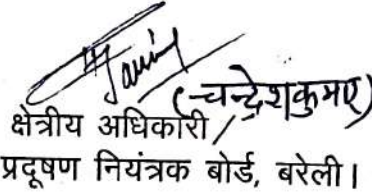 (चन्द्रेश कुमार)
क्षेत्रीय अधिकारी
प्रदूषण नियंत्रक बोर्ड, बरेली।